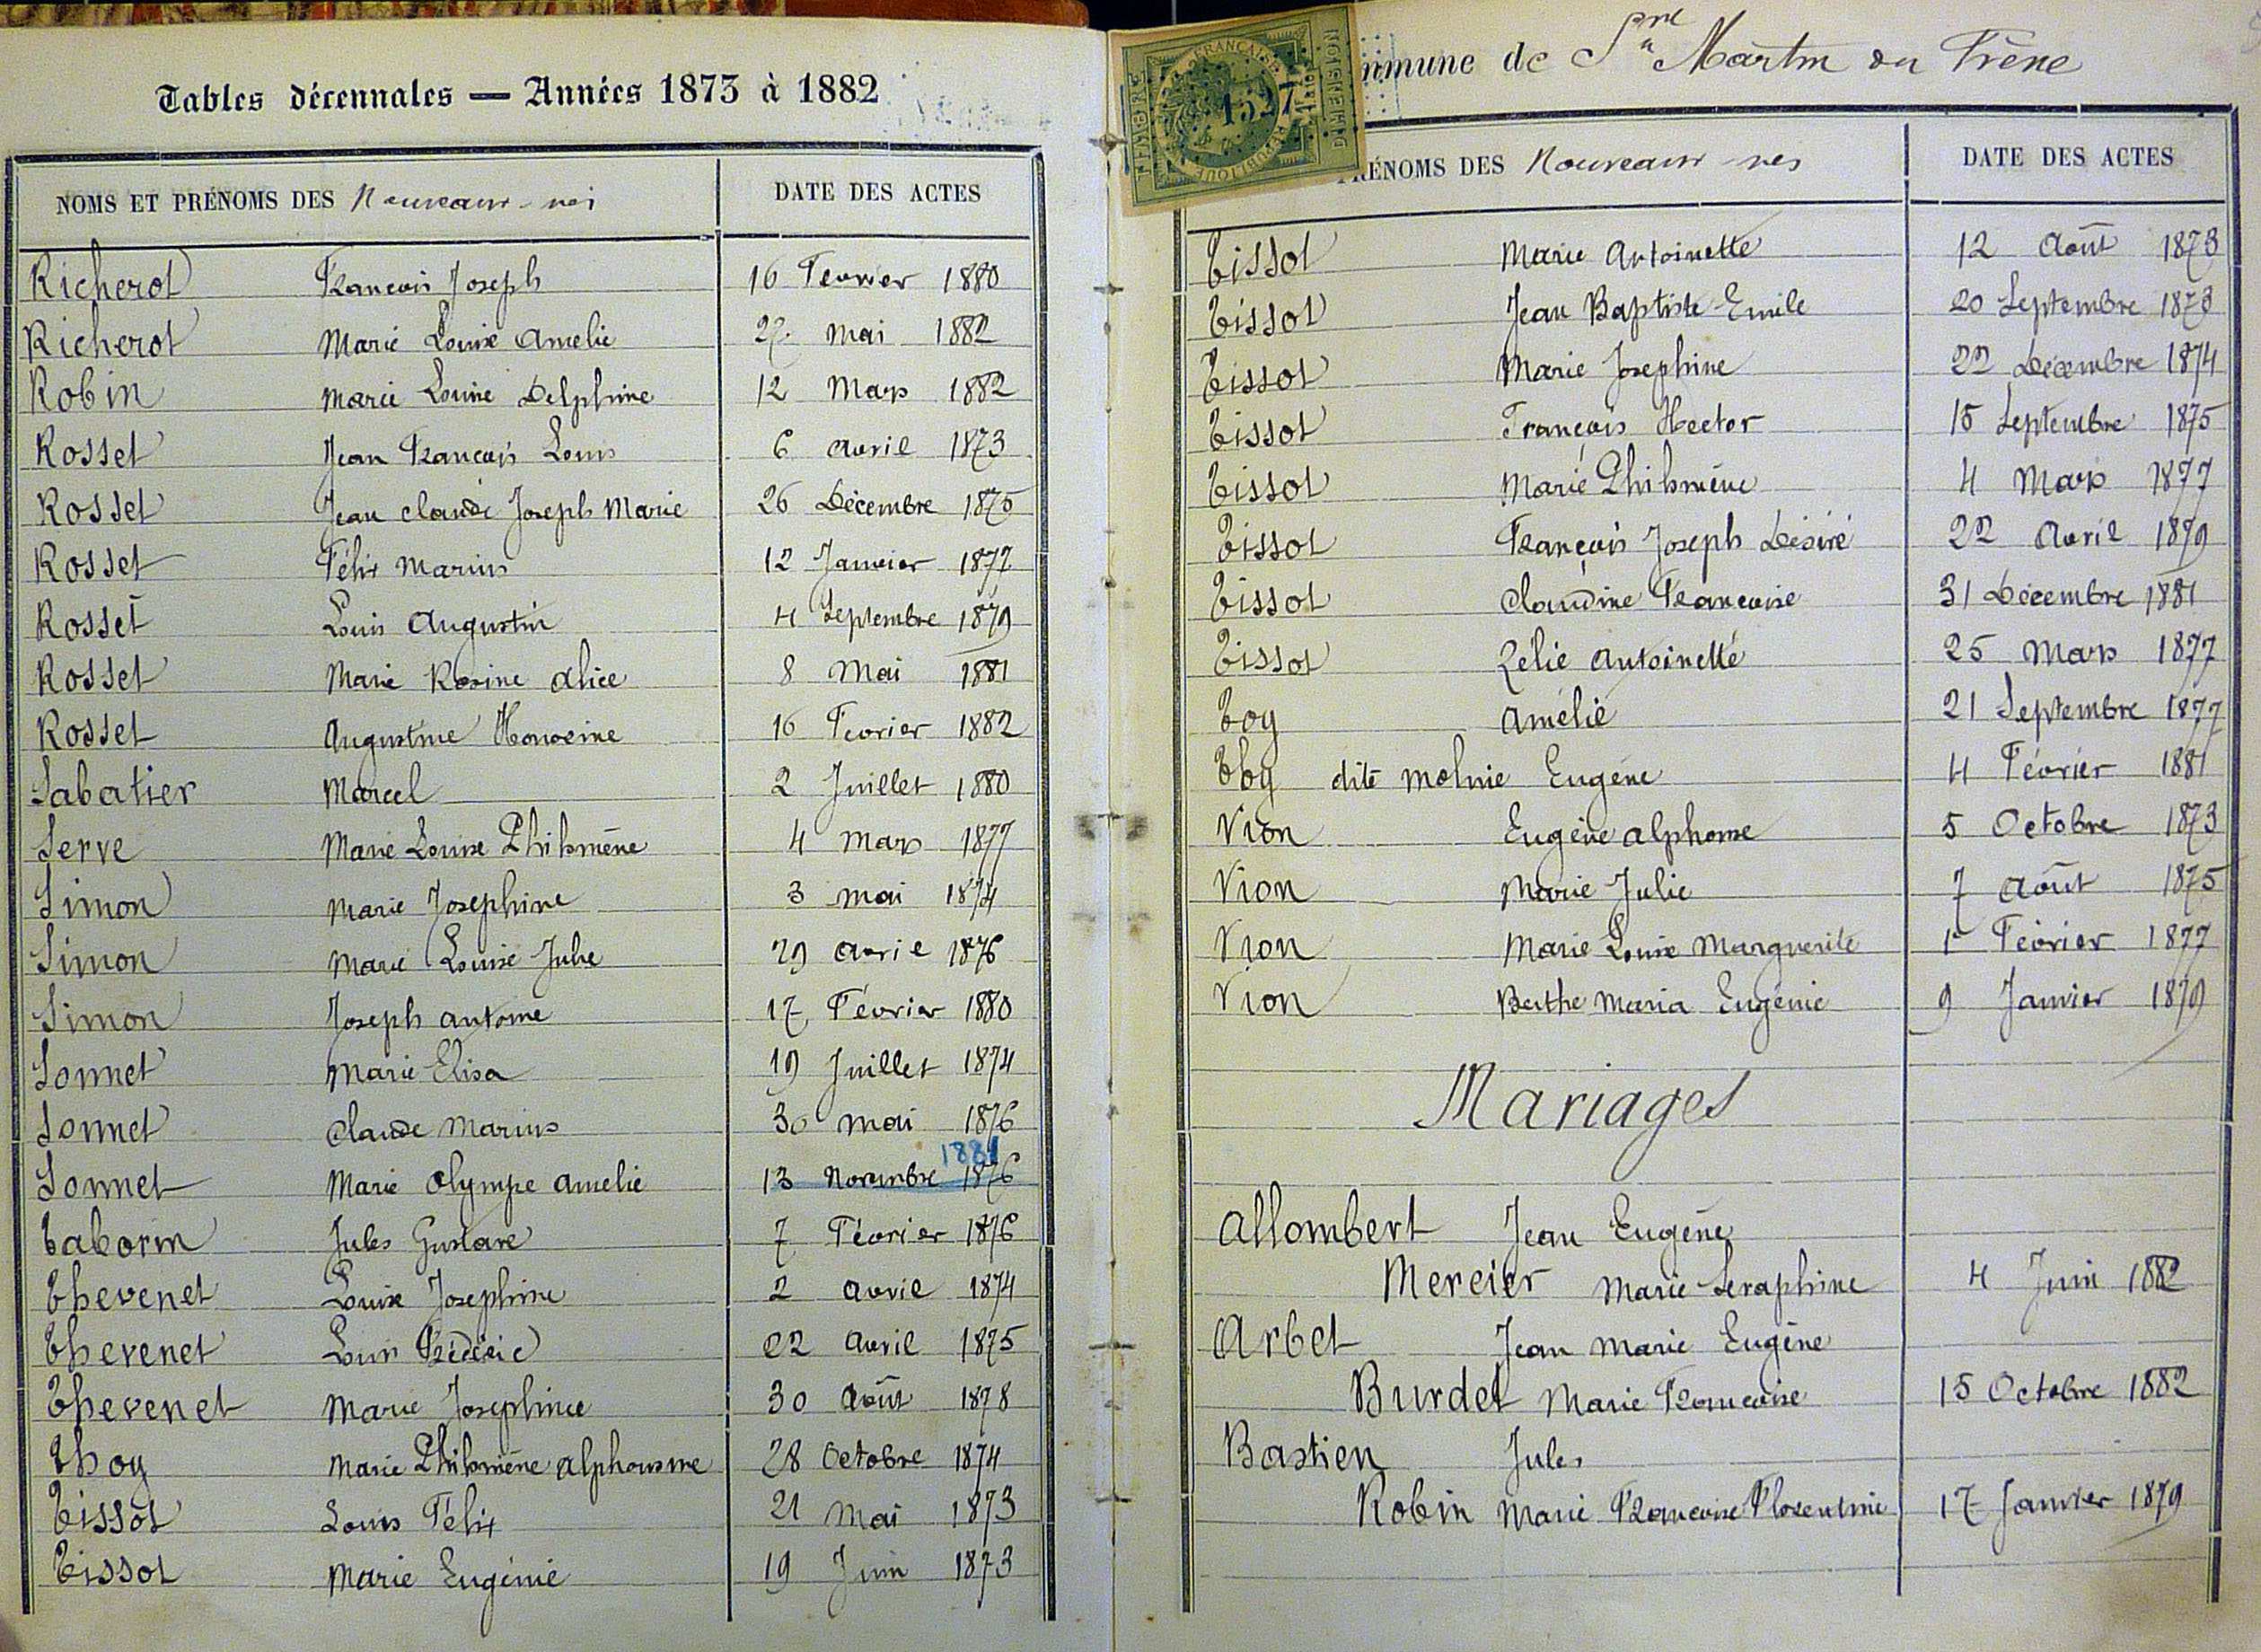 Tables décennales — Années 1873 à 1882
NOMS ET PRÉNOMS DES Nouveaux-nés DATE DES ACTES
Richerot François Joseph 16 Fevrier 1880
Richerot Marie Louise Amelie 27 Mai 1882
Robin Marie Louise Delphine 12 Mars 1882
Rosset Jean François Louis 6 Avril 1873
Rosset Jean Claude Joseph Marie 26 Décembre 1875
Rosset Félix Marius 12 Janvier 1877
Rosset Louis Augustin 4 Septembre 1879
Rosset Marie Rosine Alice 8 Mai 1881
Rosset Augustine Honorine 16 Fevrier 1882
Sabatier Marcel 2 Juillet 1880
Serve Marie Louise Philomène 4 Mars 1877
Simon Marie Josephine 3 Mai 1874
Simon Marie Louise Julie 29 Avril 1876
Simon Joseph Antoine 17 Février 1880
Sonnet Marie Elisa 19 Juillet 1874
Sonnet Claude Marius 30 Mai 1876
1881
Sonnet Marie Olympe Amelie 13 Novembre 1876
Taborin Jules Gustave 7 Février 1876
Thevenet Louise Josephine 2 Avril 1874
Thevenet Louis Fréderic 22 Avril 1875
Thevenet Marie Josephine 30 Août 1878
Thoy Marie Philomène Alphonsine 28 Octobre 1874
Tissot Louis Félix 21 Mai 1873
Tissot Marie Eugénie 19 Juin 1873
mmune de St Martin du Frêne
RÉPUBLIQUE FRANÇAISE
1527
PRÉNOMS DES Nouveaux-nés DATE DES ACTES
Tissot Marie Antoinette 12 Août 1873
Tissot Jean Baptiste Emile 20 Septembre 1873
Tissot Marie Josephine 22 Décembre 1874
Tissot François Hector 15 Septembre 1875
Tissot Marie Philomène 4 Mars 1877
Tissot François Joseph Désiré 22 Avril 1879
Tissot Claudine Françoise 31 Décembre 1881
Tissot Zélie Antoinette 25 Mars 1877
Toy Amélie 21 Septembre 1877
Thoy dite Molnie Eugene 4 Février 1881
Vion Eugène Alphonse 5 Octobre 1873
Vion Marie Julie 7 Août 1875
Vion Marie Louise Marguerite 1r Février 1877
Vion Berthe Maria Eugénie 9 Janvier 1879
Mariages
Allombert Jean Eugène
Mercier Marie Seraphine 4 Juin 1882
Arbet Jean Marie Eugène
Burdet Marie Françoise 15 Octobre 1882
Bastien Jules
Robin Marie Françoise Florentine 17 Janvier 1879